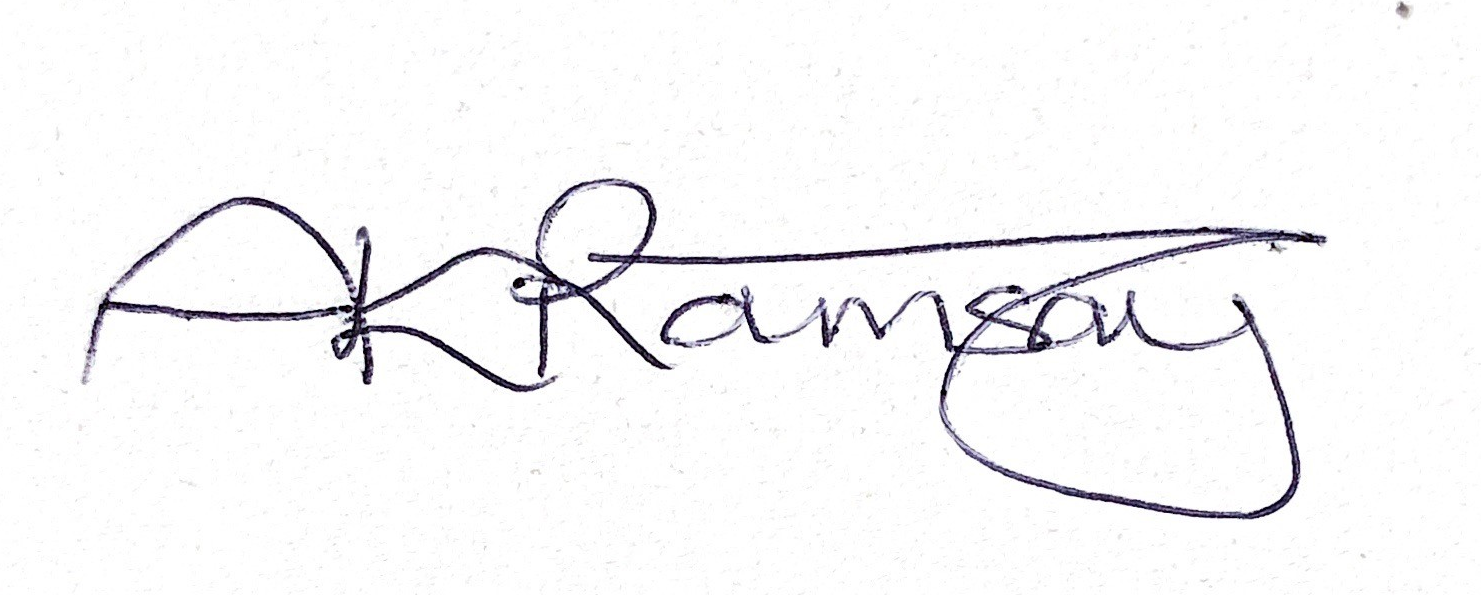 AK Ramsay